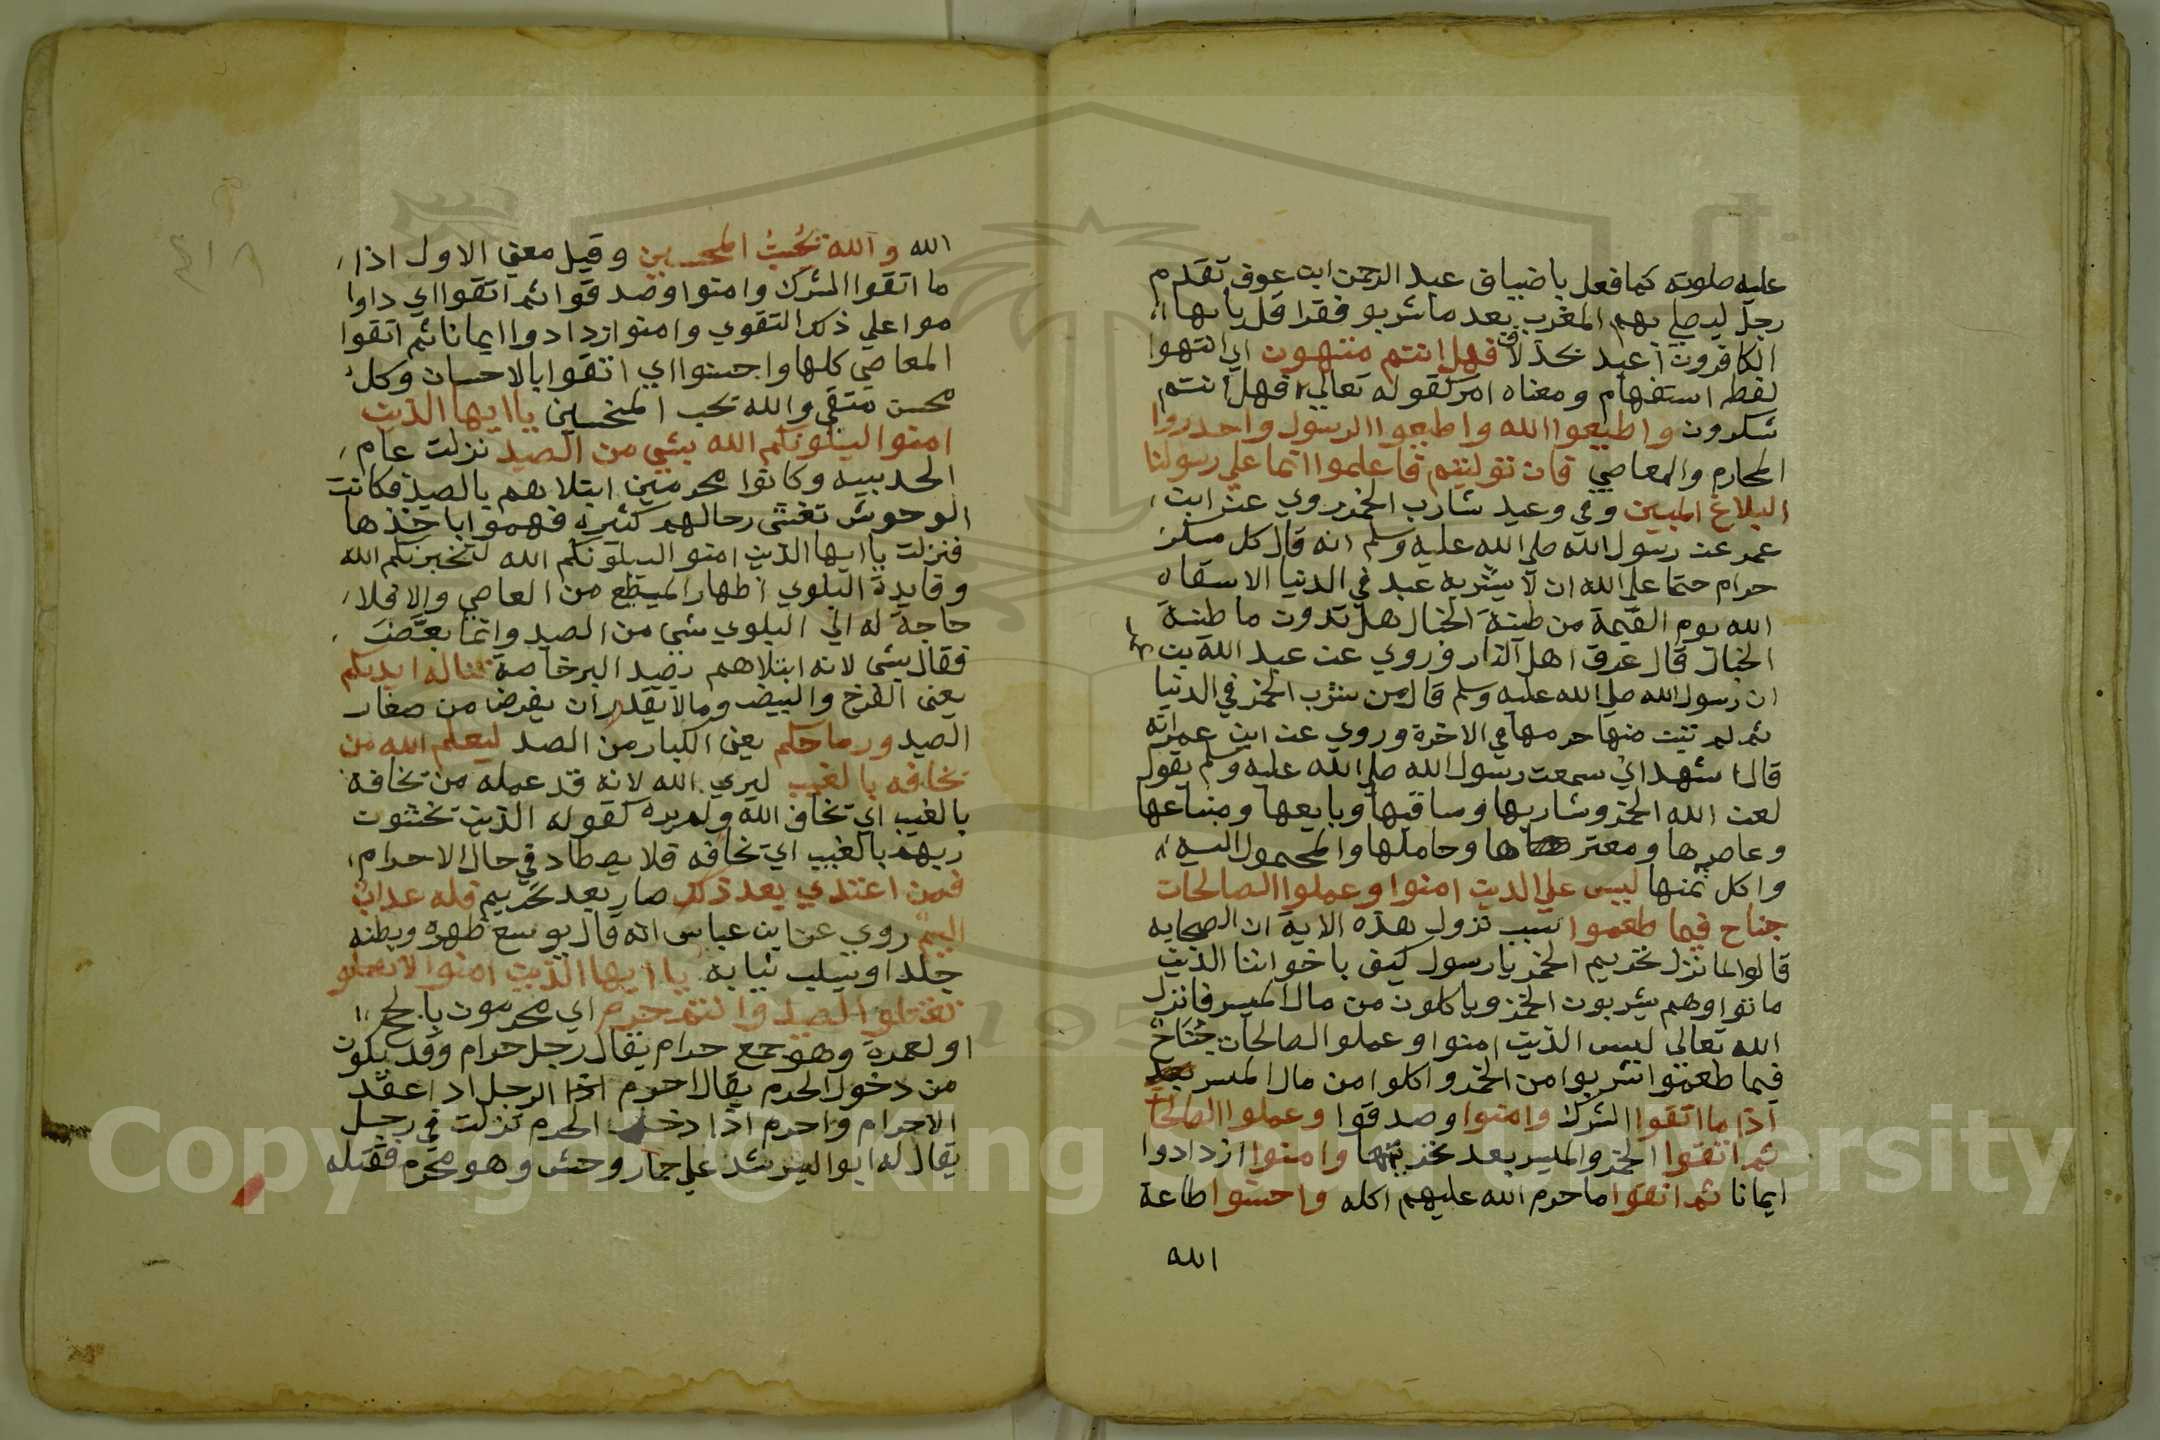 عليه صلوته كما فعل باضياف عبد الرحمن ابن عوف تقدم
رجل ليصلي بهم المغرب بعد ما شربو فقرا قل يا بها
الكافرون اعبد بحذف لا فهل انتم منتهون اي انتهوا
لفظ استفهام ومعناه امر كقوله تعالى فهل انتم
شكرون واطيعوا الله واطيعوا الرسول واحدروا
المحارم والمعاصي فان توليتم فاعلموا انما علي رسولنا
البلاغ المبين وفي وعيد شارب الخمر روي عن ابن
عمر عن رسول الله صلي الله عليه وسلم انه قال كل مسكر
حرام حتما علي الله ان لا يشربه عبد في الدنيا الا سقاه
الله يوم القيمة من طينة الخبال هل تدرون ما طينة
الخبال قال عرق اهل النار وروي عن عبد الله بن عمر
ان رسول الله صلي الله عليه وسلم قال من شرب الخمر في الدنيا
ثم لم يتب منها حرمها في الاخرة وروي عن ابن عمر انه
قال اشهد اني سمعت رسول الله صلي الله عليه وسلم يقول
لعن الله الخمر وشاربها وساقيها وبايعها ومبتاعها
وعاصرها ومعتصرها وحاملها والمحمول اليه
واكل ثمنها ليس علي الدين امنوا وعملوا الصالحات
جناح فيما طعموا سبب نزول هذه الاية ان الصحابه
قالوا لما نزل تحريم الخمر يا رسول كيف باخواننا الذين
ماتوا وهم يشربون الخمر وياكلون من مال الميسر فانزل
الله تعالي ليس الذين امنوا وعملو الصالحات جناح
فيما طعموا شربوا من الخمر واكلوا من مال الميسر
اذا ما اتقوا الشرك وامنوا وصدقوا وعملوا الصالحات
ثم اتقوا الخمر والميسر بعد تحريمها وامنوا ازدادوا
ايمانا ثم اتقوا ما حرم الله عليهم اكله واحسنوا طاعة
الله
الله والله يحب المحسنين وقيل معني الاول اذا
ما اتقوا الشرك وامنوا وصدقوا ثم اتقوا اي داوا
موا علي ذلك التقوي وامنوا ازدادوا ايمانا ثم اتقوا
المعاصي كلها واحسنوا اي اتقوا بالاحسان وكل
محسن متقي والله يحب المحسنين يا ايها الذين
امنوا ليبلونكم الله بشي من الصيد نزلت عام
الحديبيه وكانوا محرمين ابتلاهم بالصيد فكانت
الوحوش تغشى رحالهم كثيره فهموا باخذها
فنزلت يا ايها الذين امنوا ليبلونكم الله لنخبرنكم الله
وفايدة البلوي اظهار المطيع من العاصي والا فلا
حاجة له الي البلوي بشي من الصيد وانما بعض
فقال بشي لانه ابتلاهم بصيد البر خاصة تناله ايديكم
يعني الفرخ والبيض وما لا يقدر ان يفرض من صغار
الصيد ورماحكم يعني الكبار من الصد ليعلم الله من
يخافه بالغيب ليري الله لانه قد عمله من يخافه
بالغيب اي يخاف الله ولم يره كقوله الذين يخشون
ربهم بالغيب اي يخافه فلا يصطاد في حال الاحرام
فمن اعتدي بعد ذلك صار بعد تحريم فله عذاب
اليم روي عن ابن عباس انه قال يوسع ظهره وبطنه
جلدا ويسلب ثيابه يا ايها الذين امنوا لا
تقتلوا الصيد وانتم حرم اي محرمون بالحج
او لعمرة وهو جمع حرام يقال رجل حرام وقد يكون
من دخول الحرم يقال احرم اذا الرجل اذ اعقد
الاحرام واحرم اذا دخل الحرم نزلت في رجل
يقال له ابو اليسر شد علي حمار وحش وهو محرم فقتله
٤١٨
Copyright © King Saud University
1957